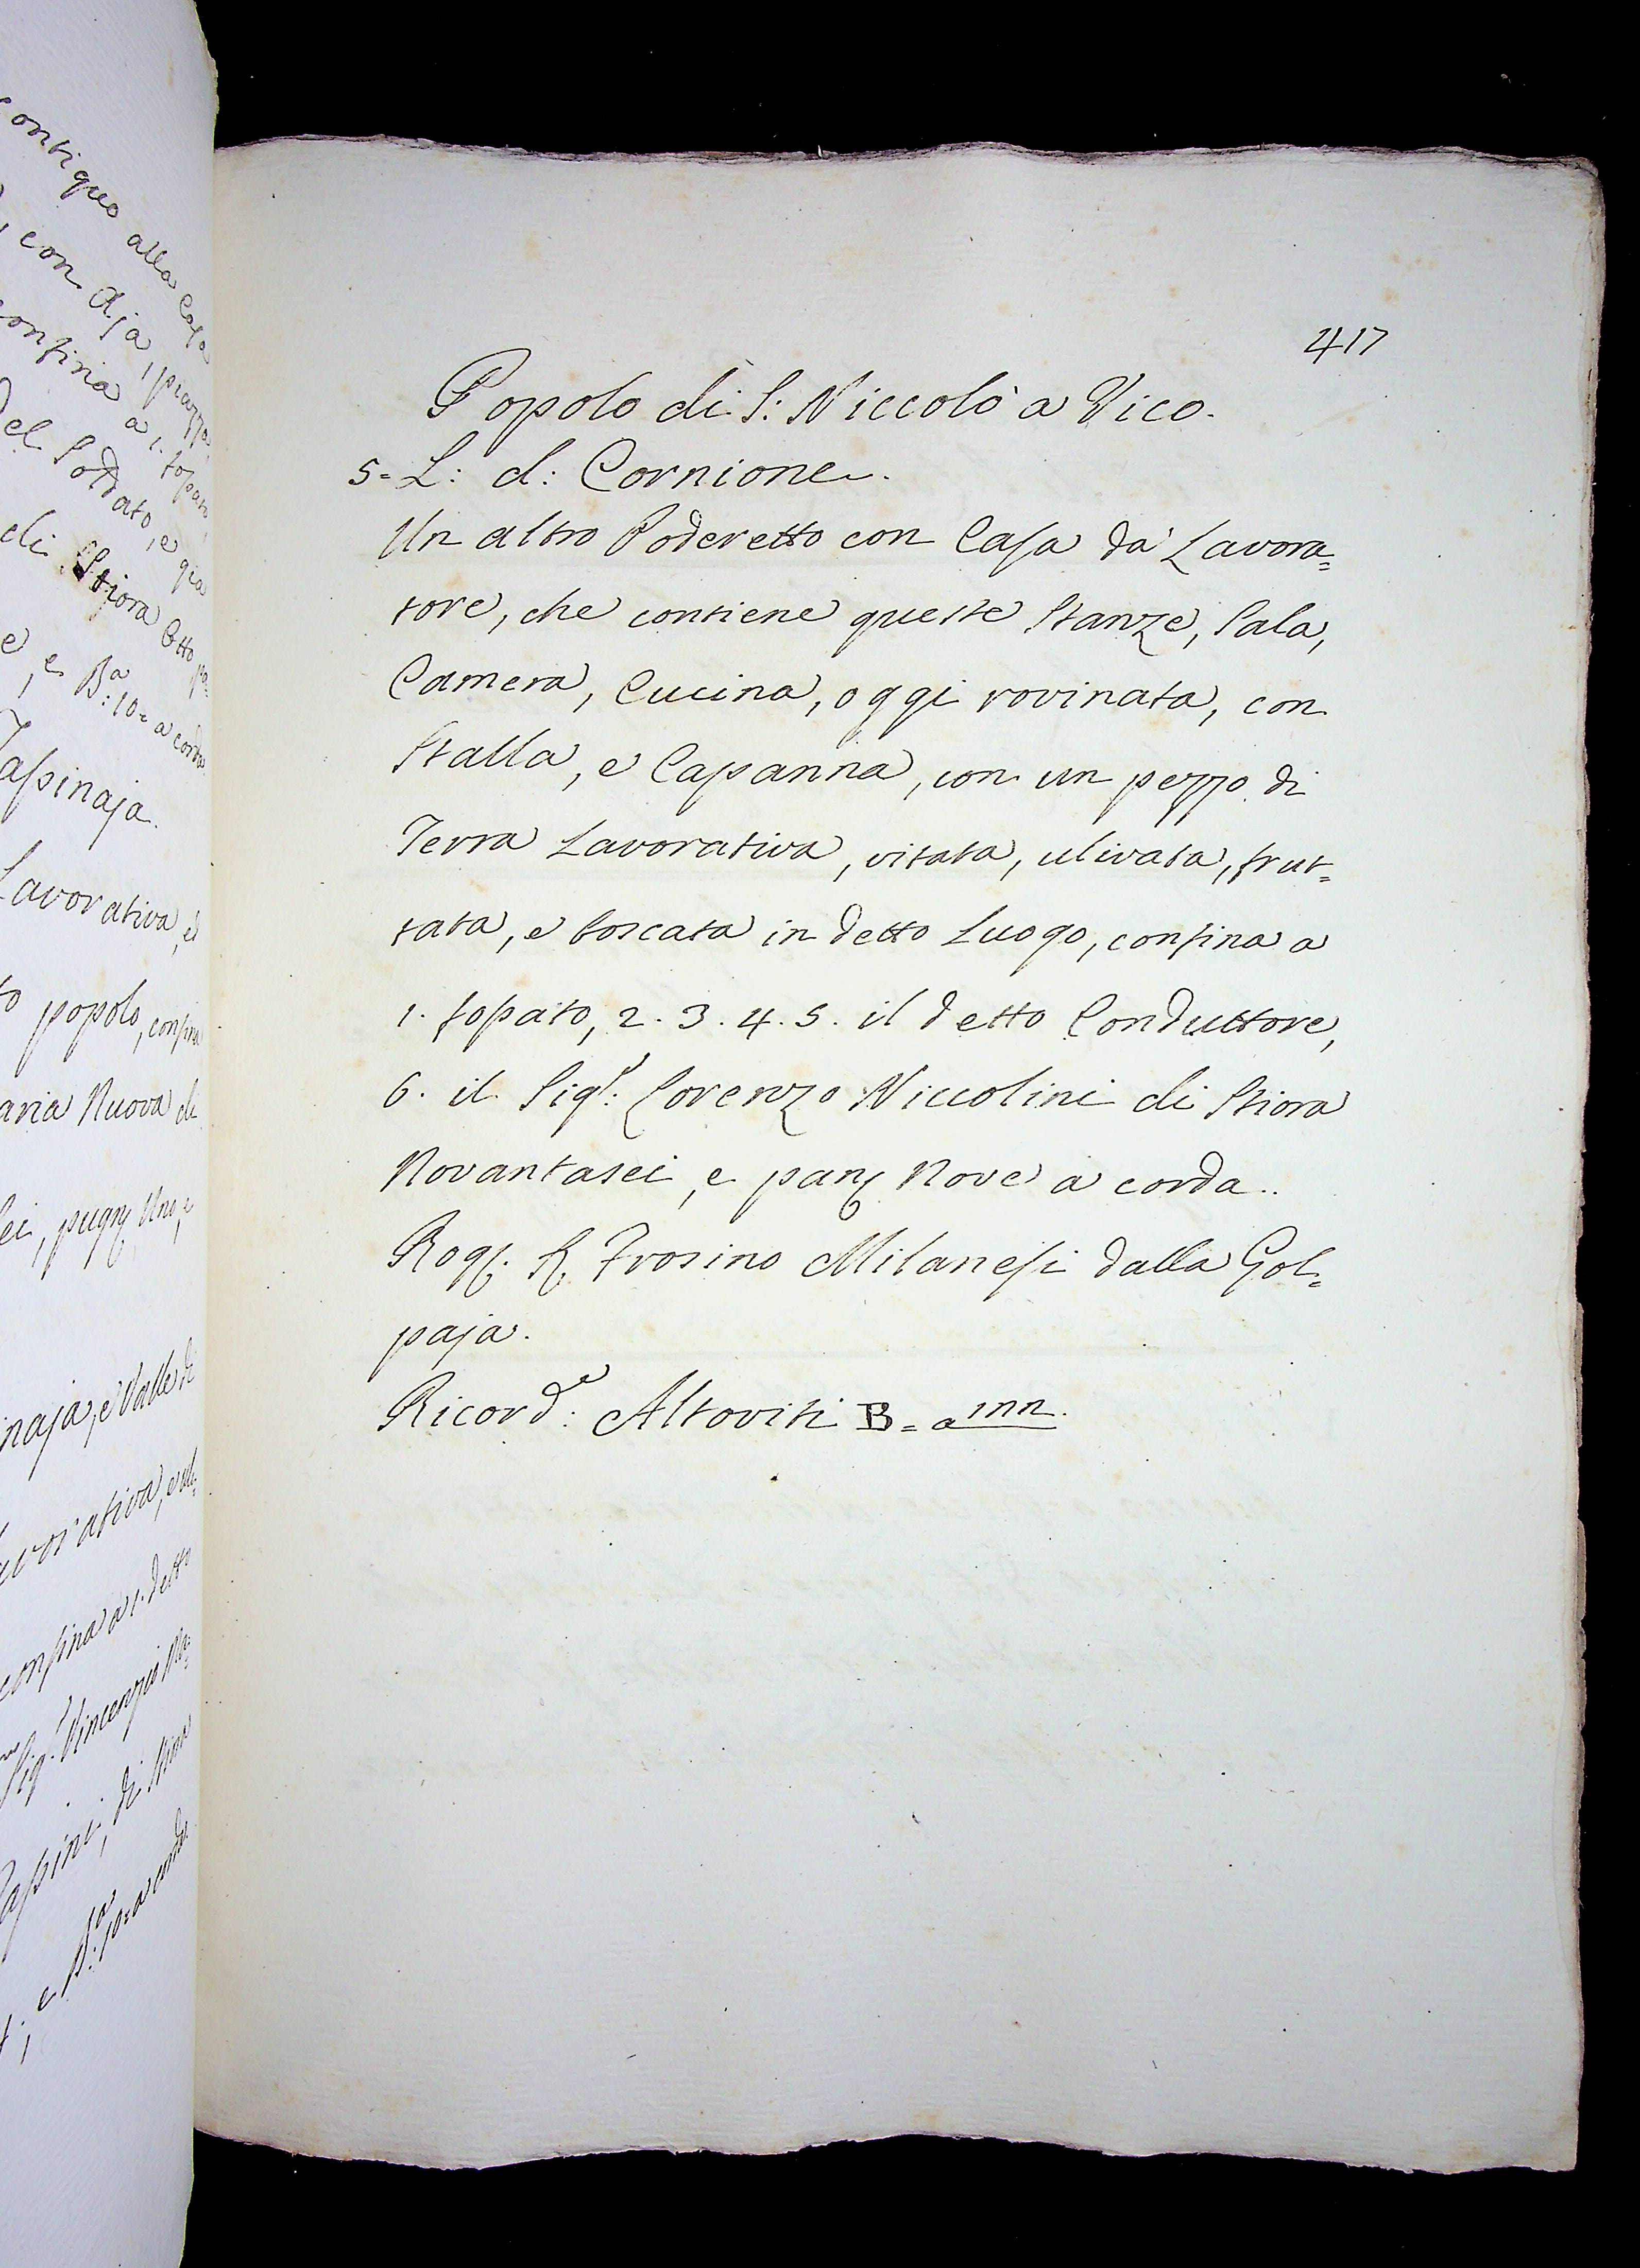 ontiguo alla Casa
, con Aja, piazza,
confina a 1. fossato,
Del Soldato, e già
di Stiora Otto, pa:
e, e B.a: 10= a corda
Tassinaja.
Lavorativa, e
to popolo, confina
aria Nuova di
sei, pugn. Uno, e
inaja, e Valle di
avorativa, e ul:
confina a 1. detto
Sig.r Vincenzio
assini, di Stiora
, e B.a: 10= a corda
417
Popolo di S: Niccolò a Vico.
5= L: d: Cornione.
Un altro Poderetto con Casa da Lavora=
tore, che contiene queste Stanze, Sala,
Camera, Cucina, oggi rovinata, con
Stalla, e Capanna, con un pezzo di
Terra Lavorativa, vitata, ulivata, frut=
tata, e boscata in detto Luogo, confina a
1. fossato, 2. 3. 4. 5. il detto Conduttore,
6. il Sig.r: Lorenzo Niccolini di Stiora
Novantasei, e pan. Nove a corda.
Rog. S. Frosino Milanesi dalla Gol=
paja.
Ricord.e: Altoviti B= a 177.